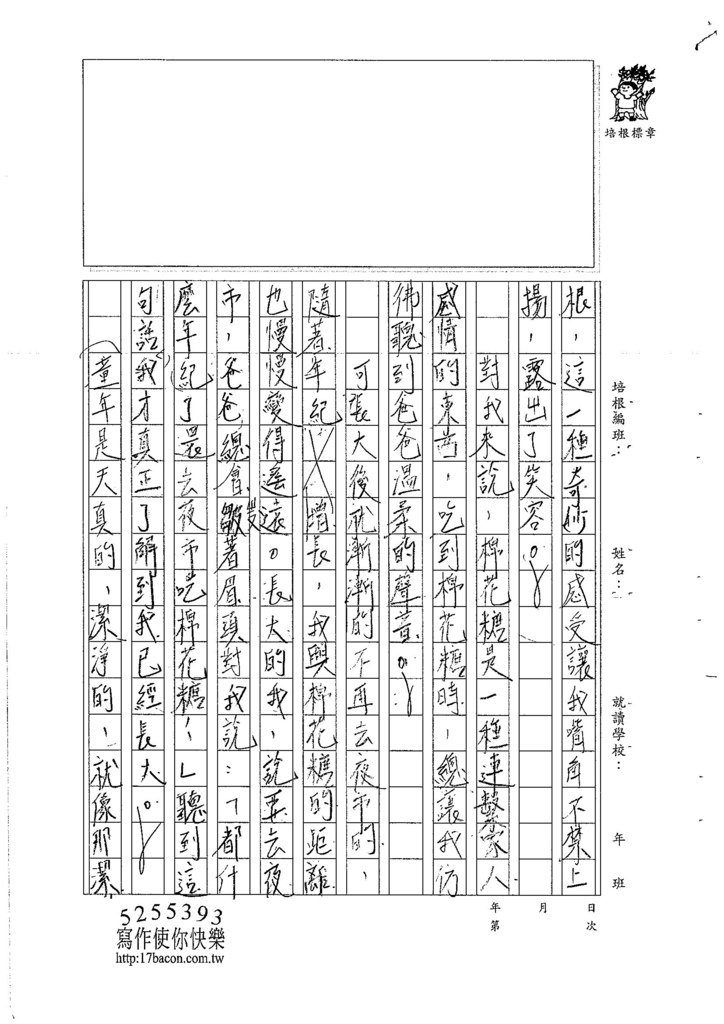 培根標章
培根編班：
姓名：
就讀學校：
年 班
根，這一種奇妙的感受讓我嘴角不禁上
揚，露出了笑容。
對我來說，棉花糖是一種連繫家人
感情的東西，吃到棉花糖時，總讓我彷
彿聽到爸爸溫柔的聲音。
可長大後就漸漸的不再去夜市的，
隨著年紀增長，我與棉花糖的距離
也慢慢變得遙遠。長大的我，說要去夜
市，爸爸總會皺著眉頭對我說：「都什
麼年紀了還去夜市吃棉花糖！」聽到這
句話我才真正了解到我已經長大。
童年是天真的，潔淨的，就像那潔
年 月 日
第 次
5255393
寫作使你快樂
http:17bacon.com.tw